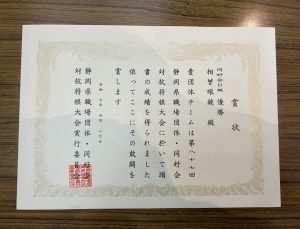 賞状
同好会B級 優勝
相曽眼鏡 殿
貴団体チームは第八十七回
静岡県職場団体・同好会
対抗将棋大会に於いて頭
書の成績を得られました
依ってここにその敢闘を
賞します
令和 七年 四月 二〇日
静岡県職場団体・同好会
対抗将棋大会実行委員会